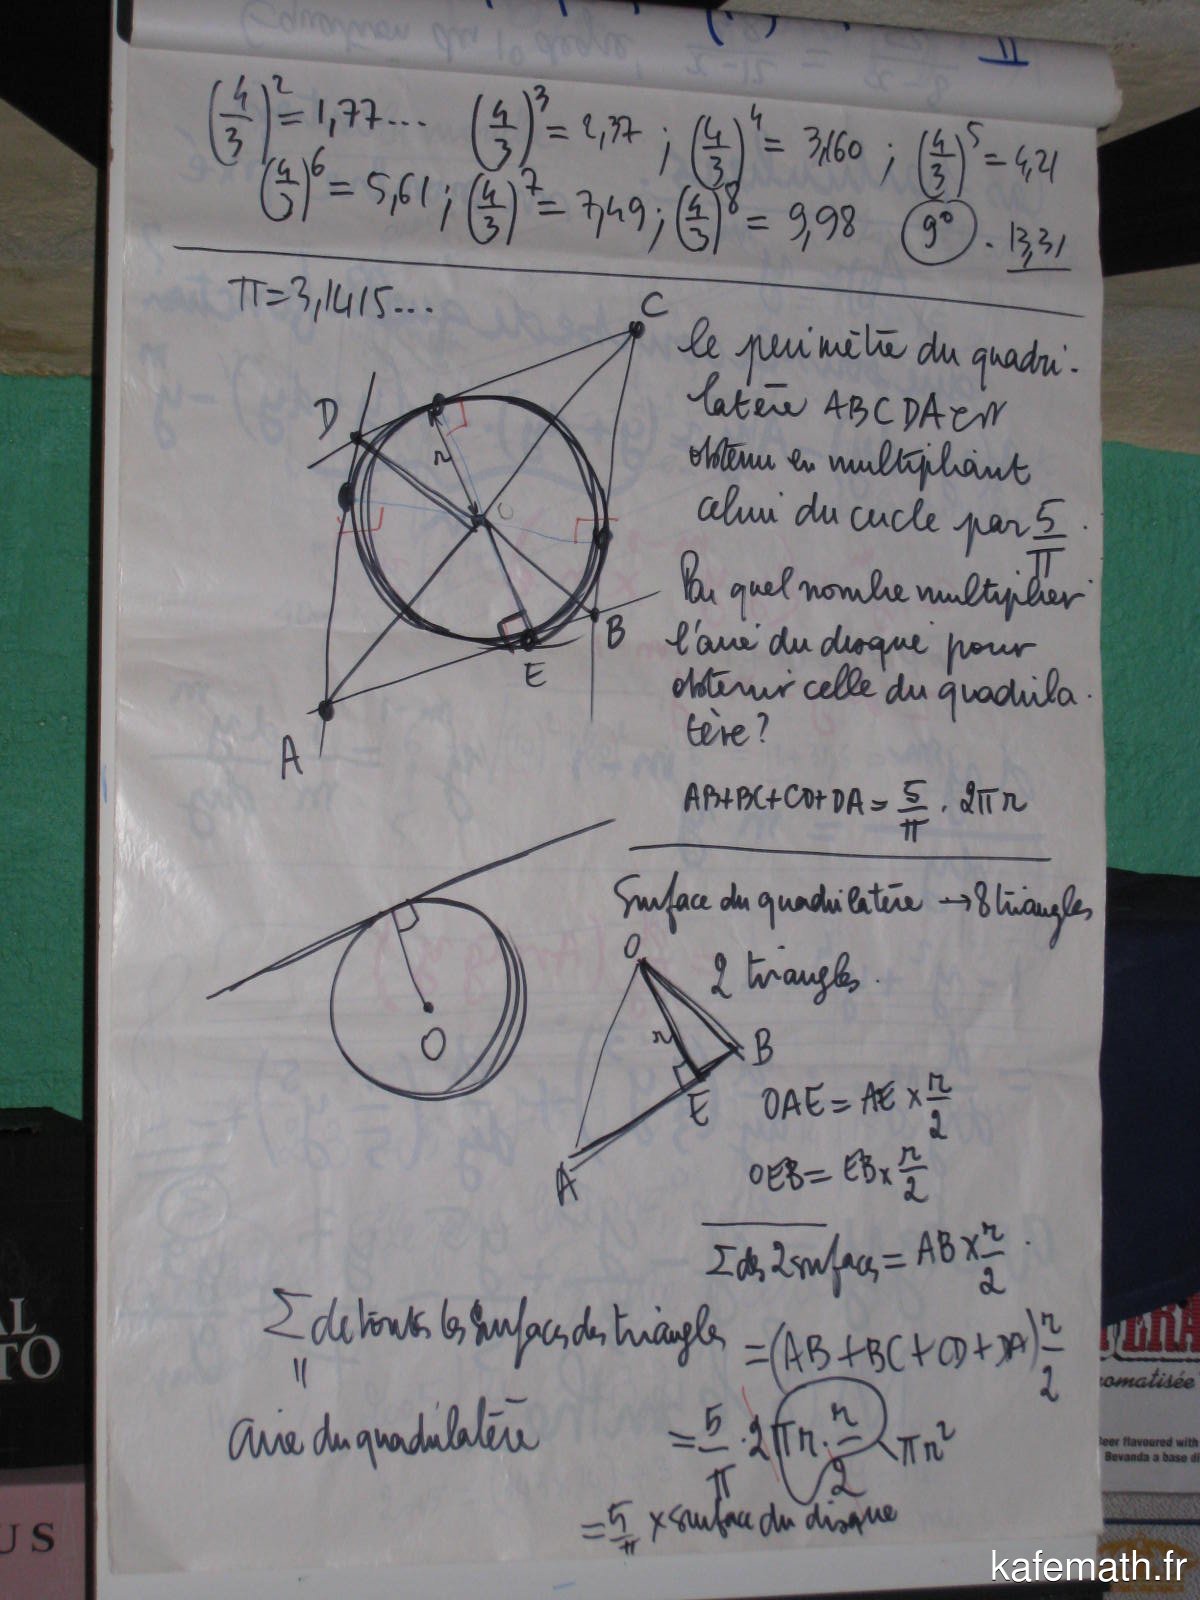 (4/3)^2 = 1,77... (4/3)^3 = 2,37 ; (4/3)^4 = 3,160 ; (4/3)^5 = 4,21
(4/3)^6 = 5,61 ; (4/3)^7 = 7,49 ; (4/3)^8 = 9,98 9° . 13,31
π = 3,1415...
C
D
r
O
B
E
A
le périmètre du quadri-
latère ABCDA est
obtenu en multipliant
celui du cercle par 5/π.
Par quel nombre multiplier
l'aire du disque pour
obtenir celle du quadrila-
tère ?
AB+BC+CD+DA = 5/π . 2πr
O
Surface du quadrilatère → 8 triangles
2 triangles.
O
r
B
E
A
OAE = AE × r/2
OEB = EB × r/2
Σ des 2 surfaces = AB × r/2.
Σ de toutes les surfaces des triangles = (AB + BC + CD + DA) r/2
"
aire du quadrilatère = 5/π . 2πr . r/2 πr²
= 5/π × surface du disque
AL
TO
US
omatisée
Beer flavoured with
Bevanda a base di
kafemath.fr